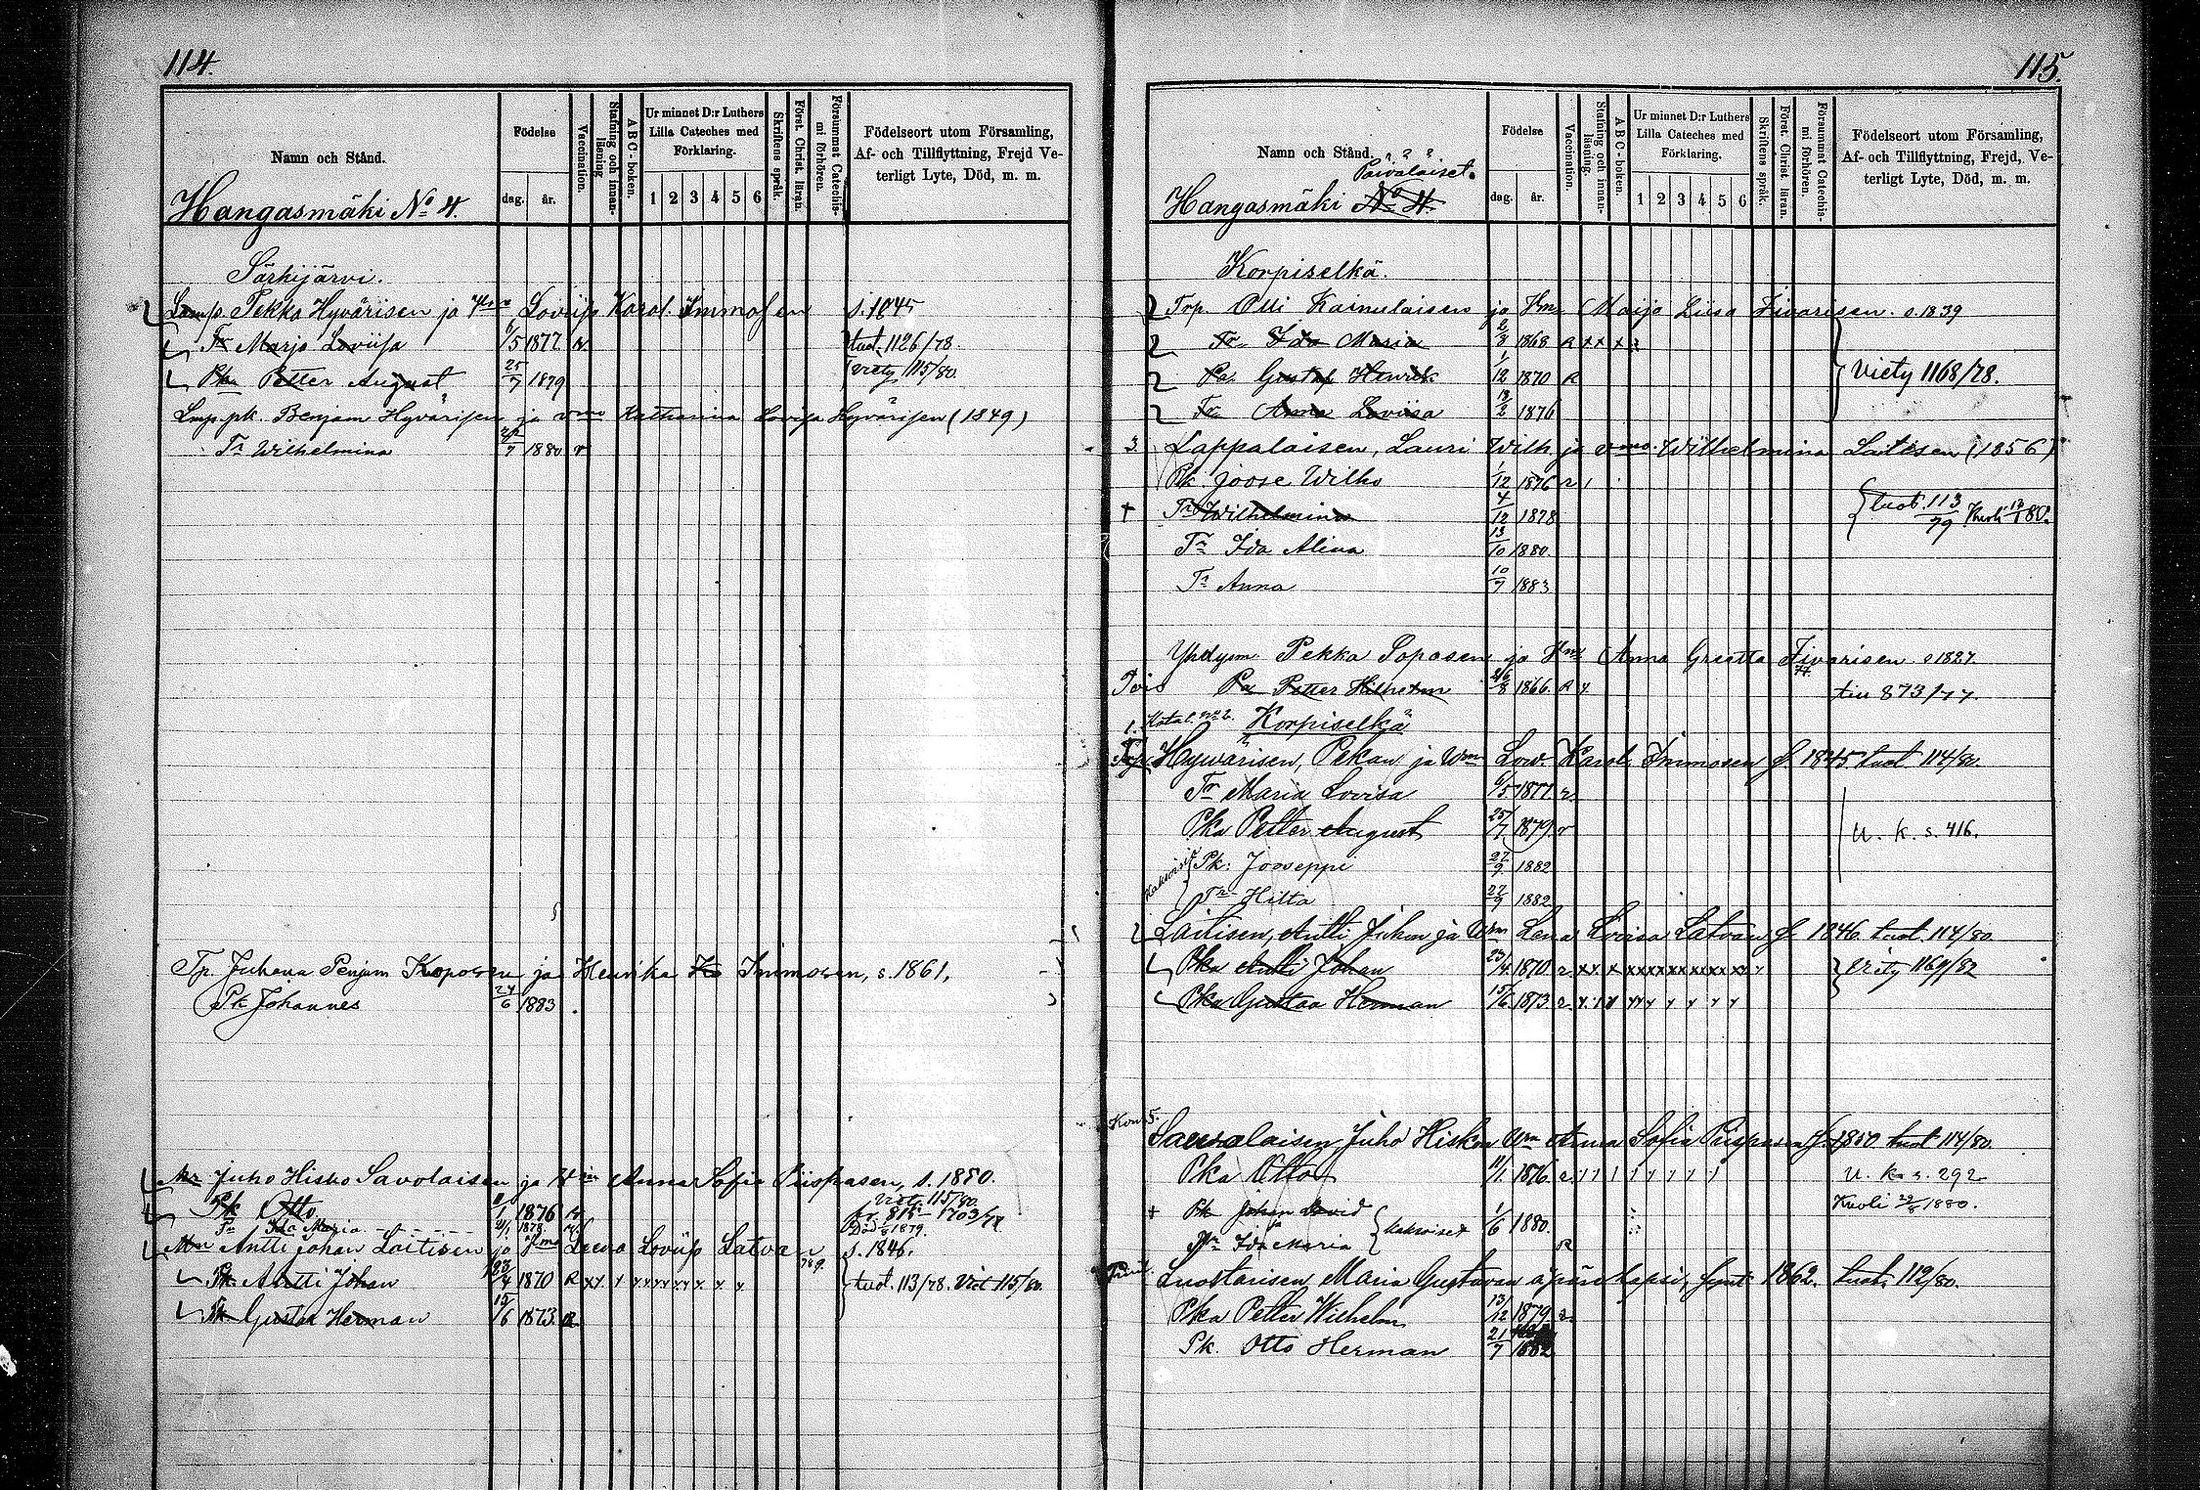 114.
Namn och Stånd.
Födelse
dag.
år.
Vaccination.
Stafning och innan-
läsning
A B C - boken.
Ur minnet D:r Luthers
Lilla Cateches med
Förklaring.
1 2 3 4 5 6
Skriftens språk.
Först. Christ. läran.
Försummat Catechis-
mi förhören.
Födelseort utom Församling,
Af- och Tillflyttning, Frejd Ve-
terligt Lyte, Död, m. m.
Hangasmäki No 4.
Särkijärvi.
Lamp. Pekka Hyvärisen ja Loviisa Karol. Immosen s. 1845
Tr Marja Loviisa 6/5 1877 tuot. 1126/78.
Pka Petter August 25/7 1879 viety 115/80.
Lmp. pk. Benjam Hyvärisen ja vmo Katharina Lovisa Hyvärisen (1849)
Tr Wilhelmina 7 1880 v
Tp. Juhana Penjam Kopo ja Henrika Immosen, s. 1861,
Pk Johannes 24/6 1883
Juho Hisko Savolaisen ja Anna Sofia Piispasen, s. 1850.
Viety 115/80.
Pk Otto 1876
Tr Ida Maria 1878
Antti Johan Laitisen ja Leena Loviisa Latvan s. 1846.
Pk Antti Johan 23/4 1870 R tuot. 113/78. Viet 115/80.
Pk Gustaa Herman 15/6 1873 R
115.
Namn och Stånd.
Födelse
dag.
år.
Vaccination.
Stafning och innan-
läsning.
A B C - boken.
Ur minnet D:r Luthers
Lilla Cateches med
Förklaring.
1 2 3 4 5 6
Skriftens språk.
Först. Christ. läran.
Försummat Catechis-
mi förhören.
Födelseort utom Församling,
Af- och Tillflyttning, Frejd, Ve-
terligt Lyte, Död, m. m.
Päiväläiset.
Hangasmäki No 4.
Korpiselkä.
Trp. Olli Kainulaisen ja Maija Liisa Iivarisen s. 1839
Tr Ida Maria 2/3 1868 R x x x
Pa. Gustaf Henrik 1/12 1870 R Viety 1168/78.
Tr Anna Loviisa 18/2 1876
3. Lappalaisen, Lauri Wilh. ja vmo Wilhelmina Laitisen (1856)
Pk. Joose Wilho 1/12 1876
+ Tr Wilhelmina 4/12 1878 tuot. 113/79 Kuoli 80.
Tr Ida Alina 13/10 1880.
Tr Anna 10/7 1883
Pekka Soposen ja Anna Greetta Iivarisen s 1827.
Pa Petter Wilhelm 8 1866. R tiu 873/77.
1. Katal. No 2. Korpiselkä
Hywärisen, Pekan ja Wm Low. Karol. Immosen f. 1845 tuot 114/80.
Tr Maria Lovisa 6/5 1877 r.
Pka Petter August 25/7 1879 r U. k. s. 416.
Kaksoiset
Pk. Jooseppi 27/9 1882
Tr Hilta 27/9 1882
Laitisen, Antti Juhon ja Wm Lena Lovisa Latvan f. 1846. tuot. 114/80.
Pka Antti Johan 23/4 1870 r. viety 1169/82
Pka Gustaa Herman 15/6 1873 r.
5.
Sawolaisen Juho Hiskon Wm Anna Sofia Piispasen f. 1850 tuot 114/80.
Pka Otto 11/1. 1876. r. U. k. s. 292
+ Pk Johan David 1/6 1880. Kuoli 29/8 1880.
Tr Ida Maria Kaksoiset R
Luostarisen Maria Gustavan äpärelapsi, synt 1862. tuot. 112/80.
Pka Petter Wilhelm 13/12 1879 r.
Pk. Otto Herman 21/7 1882